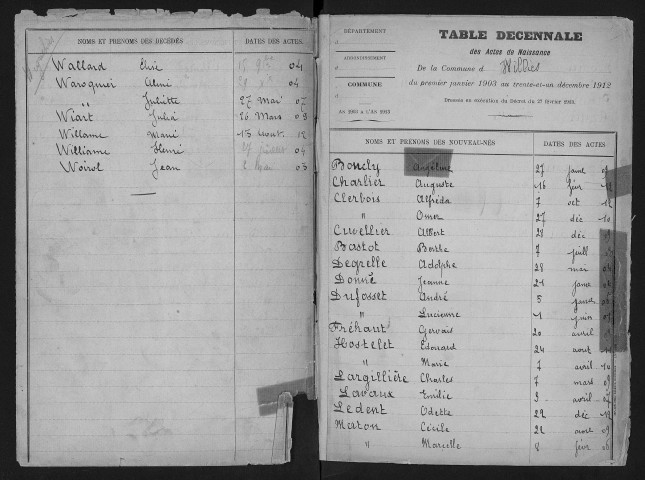 NOMS ET PRÉNOMS DES DÉCÉDÉS DATES DES ACTES
Wallard Élisé 15 04
Waroquier Aliné 04
" Juliette 27 Mai 07
Wiart Julia 26 Mars 09
Willame Marie 15 12
Williame Henri 04
Woirot Jean mai 03
DÉPARTEMENT
ARRONDISSEMENT
COMMUNE
AN 1903 A L'AN 1913
TABLE DECENNALE
des Actes de Naissance
De la Commune d Wilhies
du premier janvier 1903 au trente-et-un décembre 1912
Dressée en exécution du Décret du
NOMS ET PRÉNOMS DES NOUVEAU-NÉS DATES DES ACTES
Boucly Angéline 27
Charlier Auguste 16
Clerbois Alfréda 7 oct 12
" Omer 27 déc 10
Cuvellier Albert 28 déc
Bastot Berthe 7 juill
Degrelle Adolphe 28 mai
Donné Jeanne 21
Dufosset André 5
" Lucienne 1 juin
Fréhaut Gervais 20 avril
Hostelet Edouard 24 aout
" Marie 7 avril 10
Largillière Charles 7 mars 09
Lavaux Emilie 3 avril 07
Ledent Odette 22 déc 12
Maton Cécile 22 09
" Marcelle 8 févr